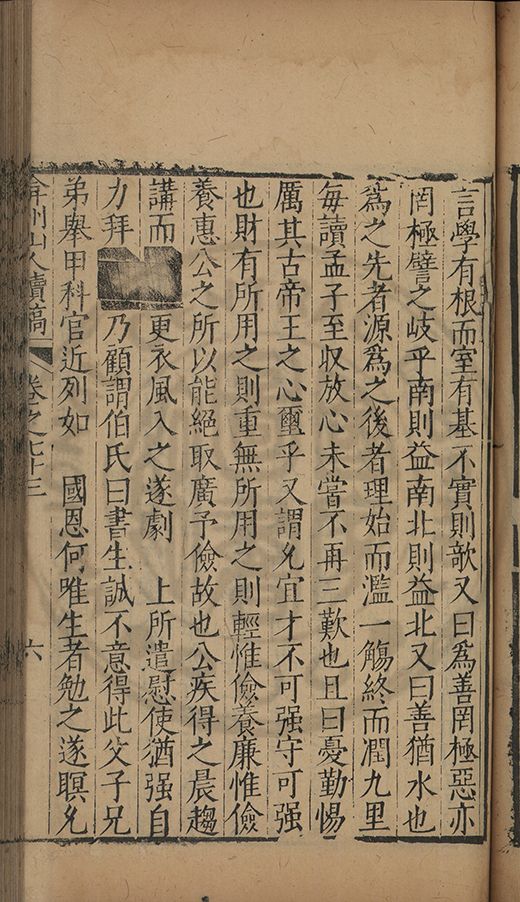 言學有根而室有基不實則欹又曰為善罔極惡亦
罔極譬之岐乎南則益南北則益北又曰善猶水也
為之先者源為之後者理始而濫一觴終而潤九里
每讀孟子至収放心未嘗不再三歎也且曰憂勤惕
厲其古帝王之心璽乎又謂允宜才不可强守可强
也財有所用之則重無所用之則輕惟儉養廉惟儉
養惠公之所以能絕取廣予儉故也公疾得之晨趨
講而更衣風入之遂劇 上所遣慰使猶强自
力拜乃顧謂伯氏曰書生誠不意得此父子兄
弟舉甲科官近列如 國恩何唯生者勉之遂瞑允
弇州山人續稿 卷之七十三 六